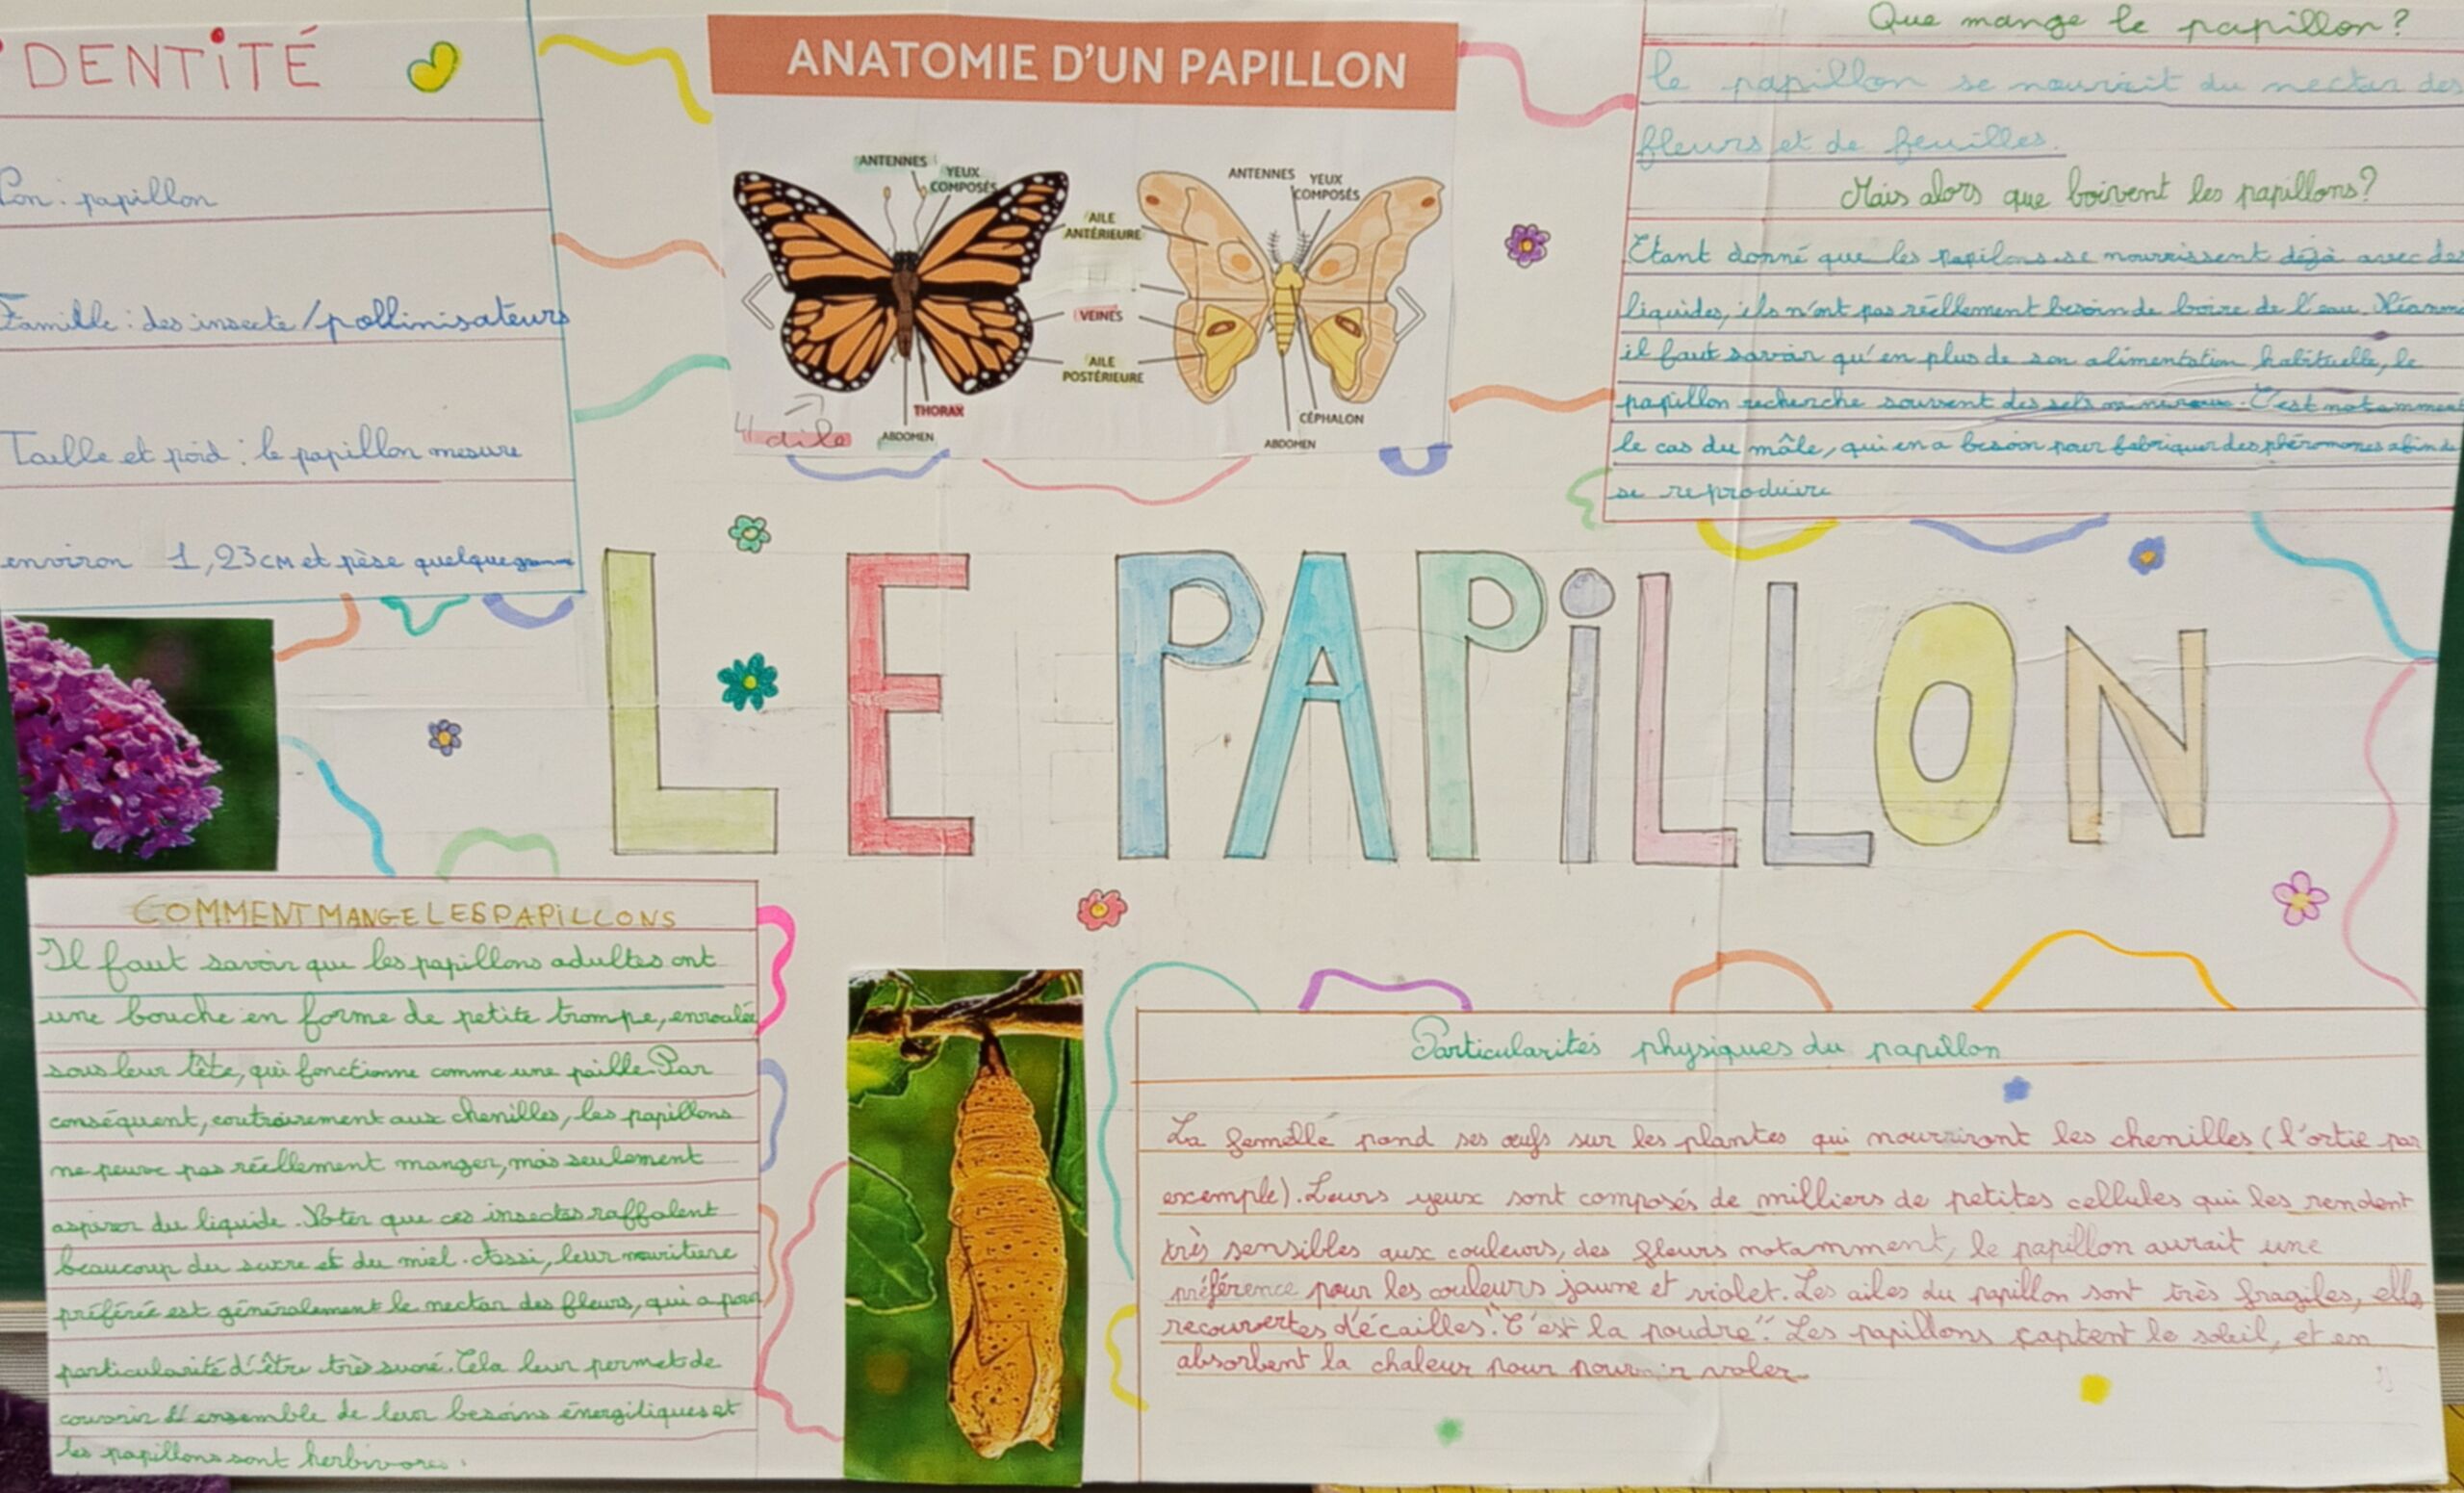 iDENTiTÉ
Pon: papillon
Famille: des insecte/pollinisateurs
Taille et poid: le papillon mesure
environ 1,23cm et pèse quelque gramme
ANATOMIE D'UN PAPILLON
ANTENNES
YEUX
COMPOSÉS
ANTENNES
YEUX
COMPOSÉS
AILE
ANTÉRIEURE
VEINES
AILE
POSTÉRIEURE
THORAX
ABDOMEN
4 aile
CÉPHALON
ABDOMEN
Que mange le papillon?
le papillon se nourrit du nectar des
fleurs et de feuilles.
Mais alors que boivent les papillons?
Etant donné que les papilons se nourrissent déjà avec des
liquides, ils n'ont pas réellement besoin de boire de l'eau.
il faut savoir qu'en plus de son alimentation habituelle, le
papillon recherche souvent des sels mineraux. C'est notamment
le cas du mâle, qui en a besoin pour fabriquer des phéromones afin de
se reproduire
LE PAPiLLON
COMMENT MANGE LES PAPiLLONS
Il faut savoir que les papillons adultes ont
une bouche en forme de petite trompe, enroulée
sous leur tête, qui fonctionne comme une paille. Par
conséquent, contrairement aux chenilles, les papillons
ne peuve pas réellement manger, mas seulement
aspirer du liquide. Noter que ces insectes raffolent
beaucoup du sucre et du miel. Assi, leur nouriture
préférée est généralement le nectar des fleurs, qui a pour
particularité d'être très sucré. Cela leur permet de
couvrir l'ensemble de leur besoins énergitiques et
les papillons sont herbivores.
Particularités physiques du papillon
La femelle pond ses œufs sur les plantes qui nourriront les chenilles (l'ortie par
exemple). Leurs yeux sont composés de milliers de petites cellules qui les rendent
très sensibles aux couleurs, des fleurs notamment, le papillon aurait une
préférence pour les couleurs jaune et violet. Les ailes du papillon sont très fragiles, elles
recouvertes d'écailles". C'est la poudre". Les papillons captent le soleil, et en
absorbent la chaleur pour pouvoir voler.